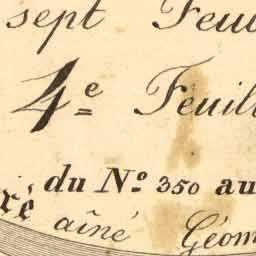 sept Feui
4e Feuill
du No. 350 au
ré aîné Géom